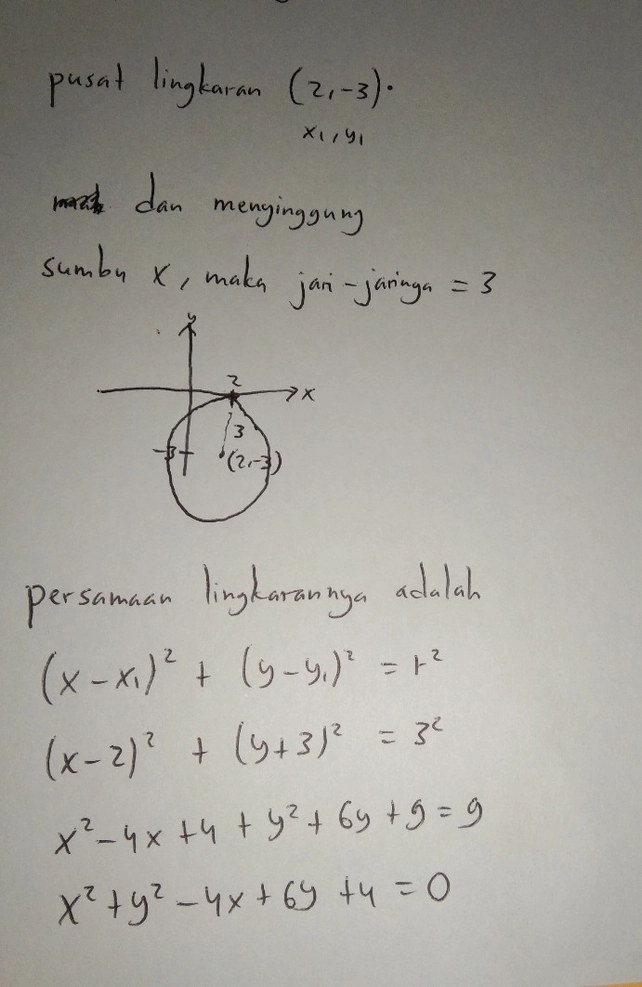 pusat lingkaran (2,-3).
x₁, y₁
dan menginggung
sumbu x, maka jari-jaringa = 3
y
2
x
3
-3
(2,-3)
persamaan lingkarannya adalah
(x-x₁)² + (y-y₁)² = r²
(x-2)² + (y+3)² = 3²
x²-4x+4 + y²+6y+9=9
x²+y²-4x+6y+4=0